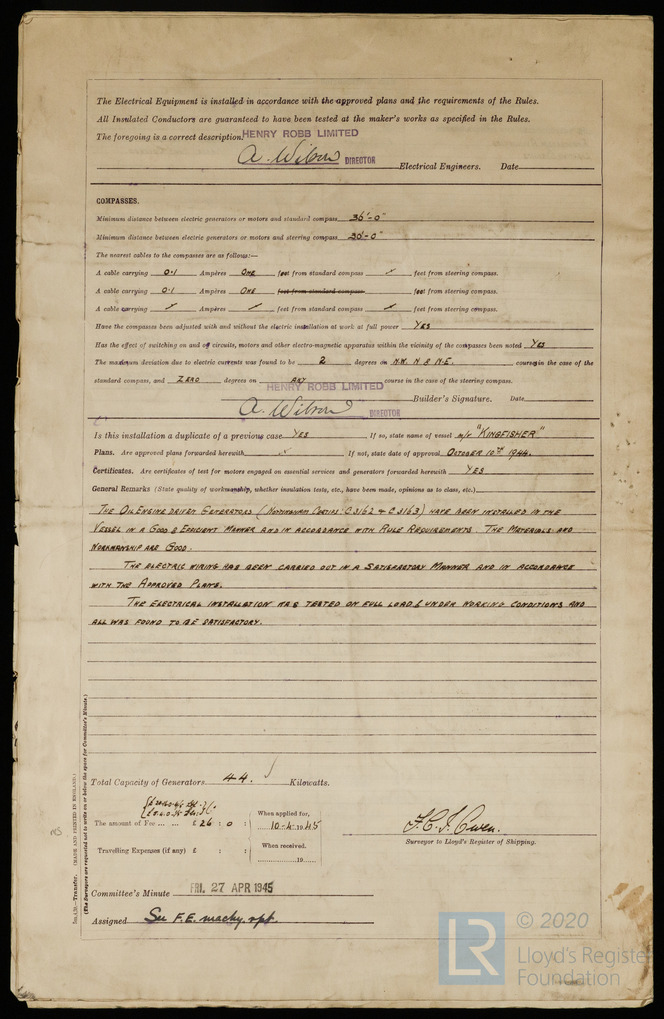 The Electrical Equipment is installed in accordance with the approved plans and the requirements of the Rules.
All Insulated Conductors are guaranteed to have been tested at the maker's works as specified in the Rules.
The foregoing is a correct description. HENRY ROBB LIMITED
A. Wilson DIRECTOR Electrical Engineers. Date
COMPASSES.
Minimum distance between electric generators or motors and standard compass 36'-0"
Minimum distance between electric generators or motors and steering compass 30'-0"
The nearest cables to the compasses are as follows:—
A cable carrying 0.1 Ampères ONE feet from standard compass ✓ feet from steering compass.
A cable carrying 0.1 Ampères ONE feet from standard compass feet from steering compass.
A cable carrying ✓ Ampères ✓ feet from standard compass ✓ feet from steering compass.
Have the compasses been adjusted with and without the electric installation at work at full power YES
Has the effect of switching on and off circuits, motors and other electro-magnetic apparatus within the vicinity of the compasses been noted YES
The maximum deviation due to electric currents was found to be 2 degrees on N.W. N & N.E. course in the case of the
standard compass, and ZERO degrees on ANY course in the case of the steering compass.
HENRY ROBB LIMITED
A. Wilson DIRECTOR Builder's Signature. Date
Is this installation a duplicate of a previous case YES If so, state name of vessel m/v "KINGFISHER"
Plans. Are approved plans forwarded herewith ✓ If not, state date of approval OCTOBER 10TH 1944.
Certificates. Are certificates of test for motors engaged on essential services and generators forwarded herewith YES
General Remarks (State quality of workmanship, whether insulation tests, etc., have been made, opinions as to class, etc.)
THE OIL ENGINE DRIVEN GENERATORS (NOTTINGHAM CERTIFS: C3162 & C3163) HAVE BEEN INSTALLED IN THE
VESSEL IN A GOOD & EFFICIENT MANNER AND IN ACCORDANCE WITH RULE REQUIREMENTS. THE MATERIALS AND
WORKMANSHIP ARE GOOD.
THE ELECTRIC WIRING HAS BEEN CARRIED OUT IN A SATISFACTORY MANNER AND IN ACCORDANCE
WITH THE APPROVED PLANS.
THE ELECTRICAL INSTALLATION WAS TESTED ON FULL LOAD & UNDER WORKING CONDITIONS AND
ALL WAS FOUND TO BE SATISFACTORY.
Total Capacity of Generators 44. Kilowatts.
The amount of Fee ... ... £ 26 : 0 : When applied for, 10.4.1945
Travelling Expenses (if any) £ : : When received, 19
F.C.J. Owen.
Surveyor to Lloyd's Register of Shipping.
Committee's Minute FRI. 27 APR 1945
Assigned See F.E. machy. rpt.
Transfer. (MADE AND PRINTED IN ENGLAND.)
(The Surveyors are requested not to write on or below the space for Committee's Minute.)
LR © 2020
Lloyd's Register
Foundation